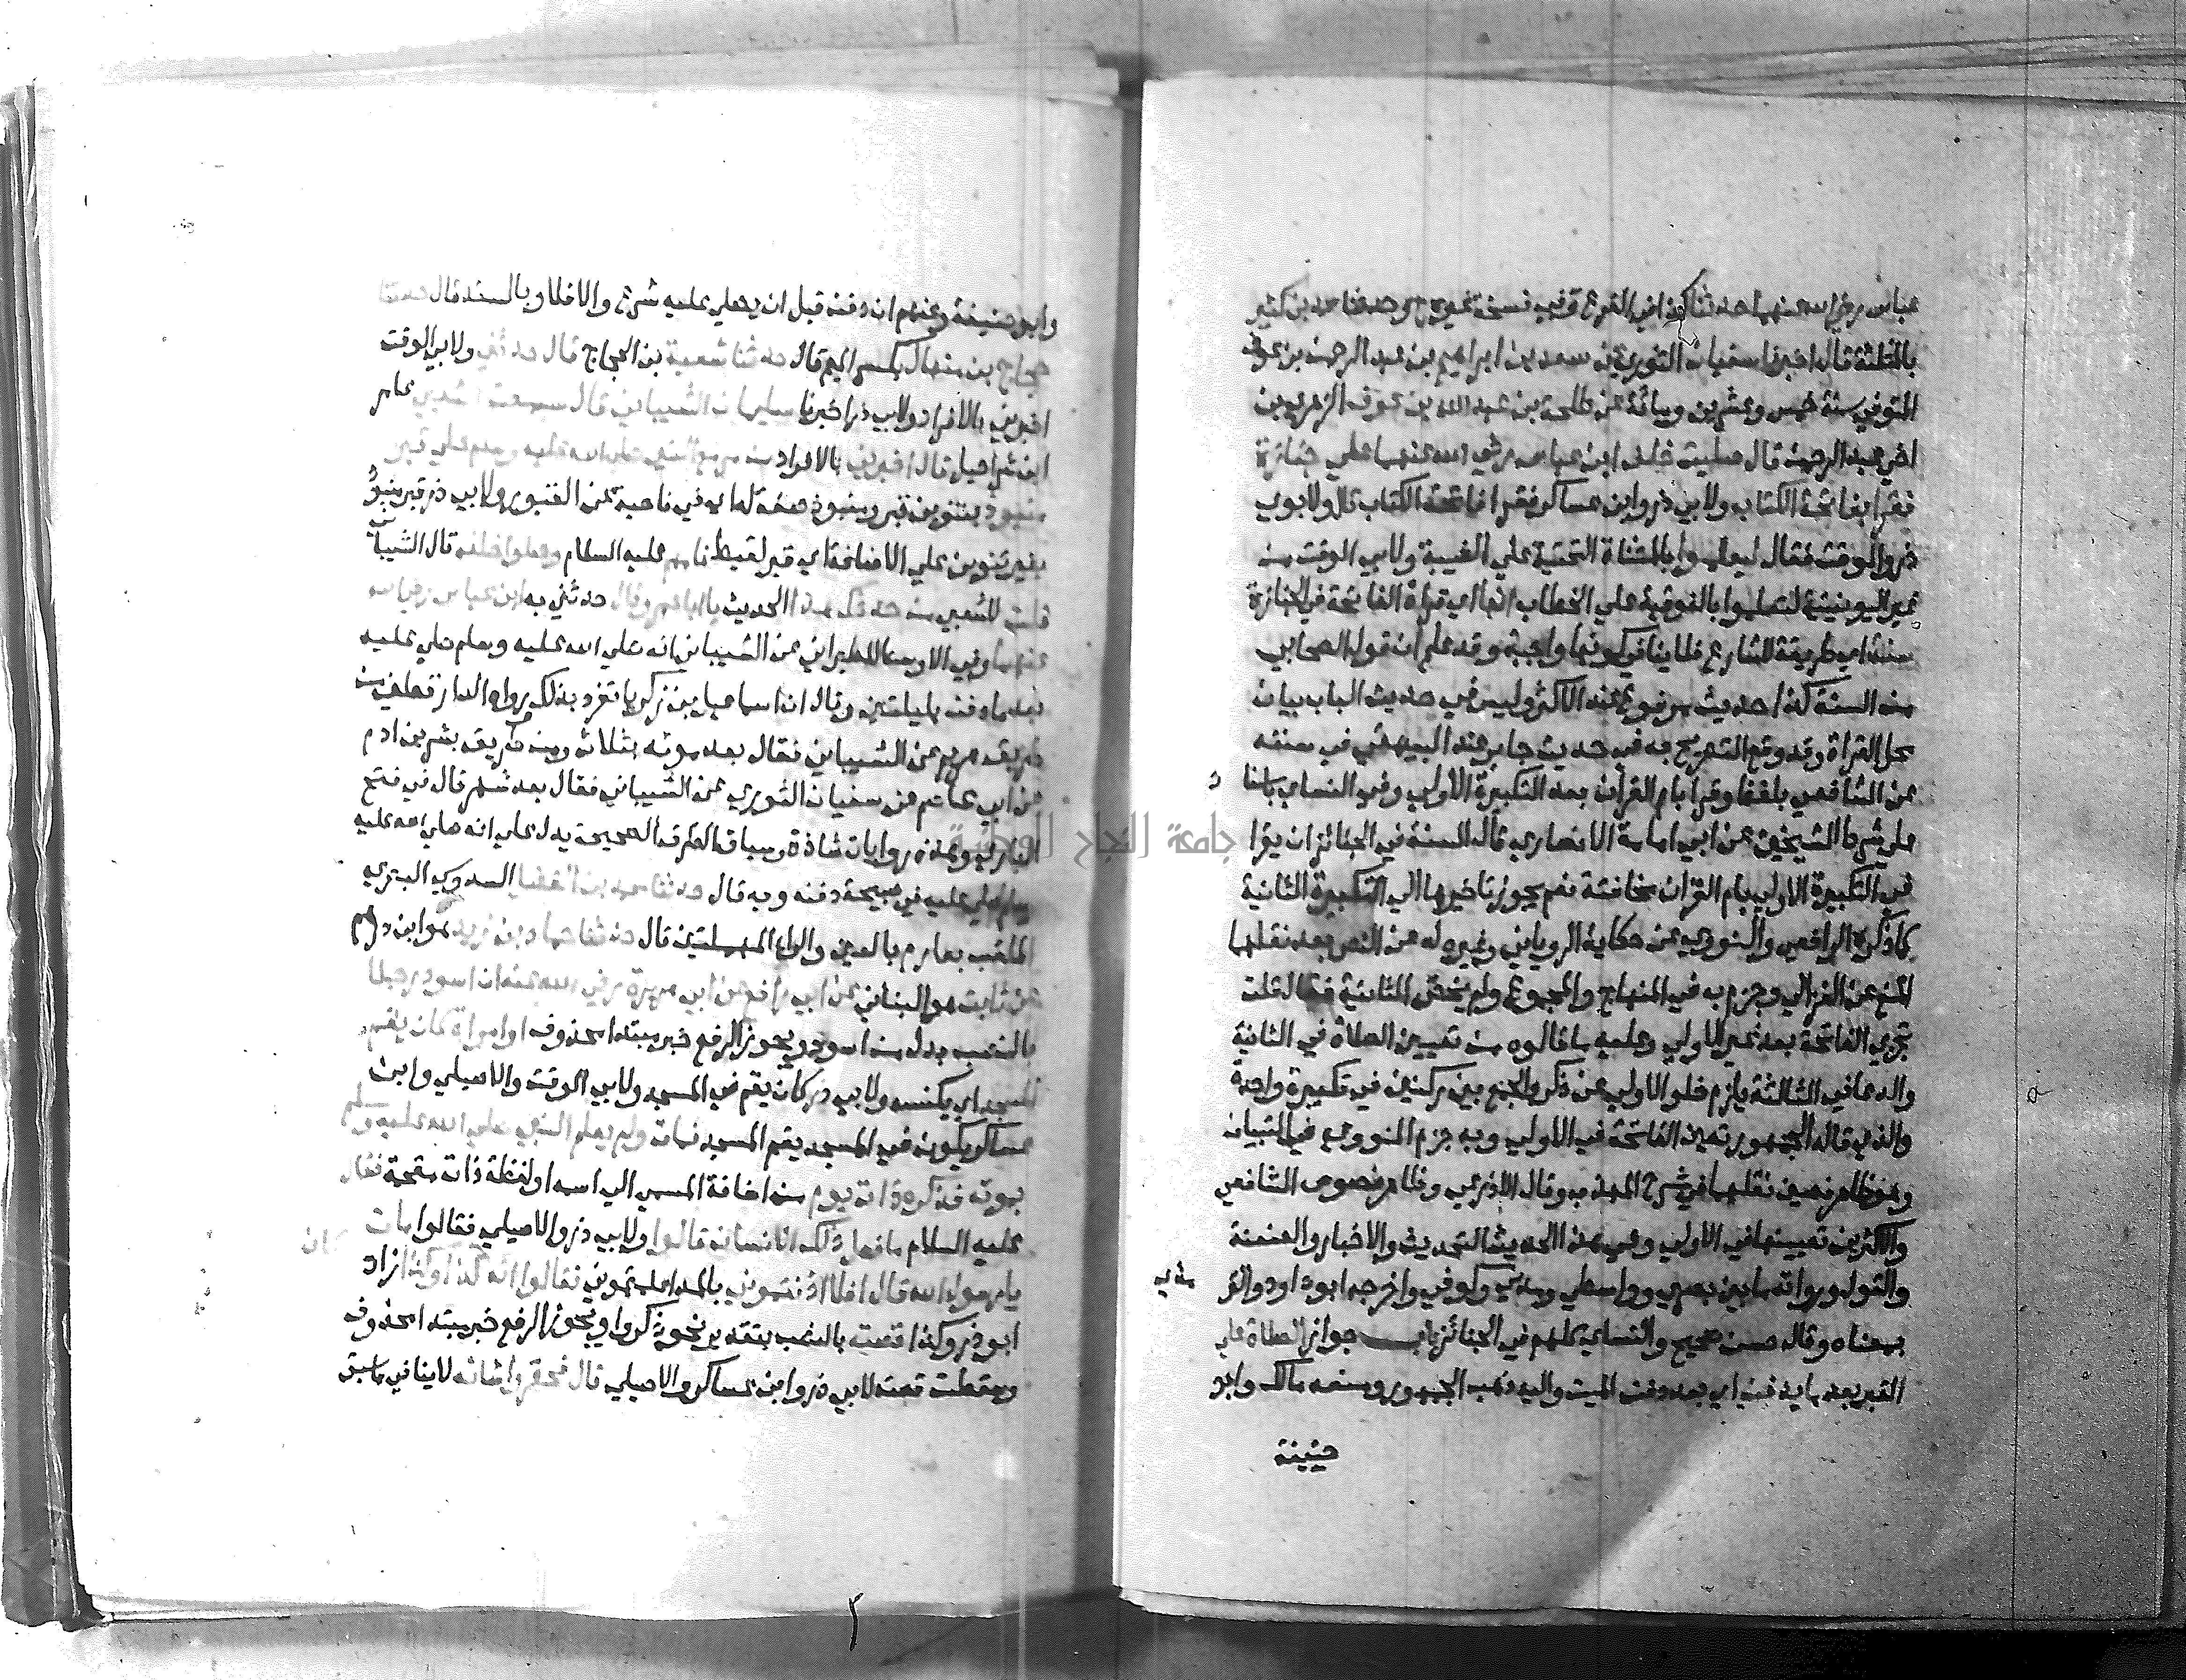 عباس رضي الله عنهما حدثنا كذا في الفرع وفي نسخة بغيره ح وحدثنا محمد بن كثير
بالمثلثة قال اخبرنا سفيان الثوري عن سعد بن ابراهيم بن عبد الرحمن بن عوف
المتوفي سنة خمس وعشرين ومائة عن طلحة بن عبد الله بن عوف الزهري بن
اخي عبد الرحمن قال صليت خلف ابن عباس رضي الله عنهما علي جنازة
فقرا بفاتحة الكتاب ولابي ذر وابن عساكر فقرا فاتحة الكتاب قال ولابوي
ذر والوقت فقال ليعلموا بالمثناة التحتية علي الغيبة ولابي الوقت من
غير اليونينية لتعلموا بالفوقية علي الخطاب انها اي قراة الفاتحة في الجنازة
سنة اي طريقة للشارع فلا ينافي كونها واجبة وقد علم ان قول الصحابي
من السنة كذا حديث مرفوع عند الاكثر وليس في حديث الباب بيان
محل القراة وقد وقع التصريح به في حديث جابر عند البيهقي في سننه
عن الشافعي بلفظ وقرا بام القران بعد التكبيرة الاولي وفي النساي باسناد
علي شرط الشيخين عن ابي امامة الانصاري قال السنة في الجنائز ان يقرا
في التكبيرة الاولي بام القران مخافتة نعم يجوز تاخيرها الي التكبيرة الثانية
كما ذكره الرافعي والنووي عن حكاية الروياني وغيره له عن النص بعد نقلهما
المنع عن الغزالي وجزم به في المنهاج والمجموع ولم يخص الثانية فقال قلت
تجزي الفاتحة بعد غير الاولي وعليه ما قالوه من تعيين الصلاة في الثانية
والدعا في الثالثة يلزم خلو الاولي عن ذكر والجمع بين ركنين في تكبيرة واحدة
والذي قاله الجمهور تعين الفاتحة في الاولي وبه جزم النووي في التبيان
وهو ظاهر نصين نقلهما في شرح المهذب وقال الاذرعي وظاهر نصوص الشافعي
والاكثرين تعيينها في الاولي وفي هذا الحديث التحديث والاخبار والعنعنة
والقول ورواته ما بين بصري وواسطي ومدني وكوفي واخرجه ابوداود والتر مذي
بمعناه وقال حسن صحيح والنساي كلهم في الجنائز باب جواز الصلاة علي
القبر بعد ما يدفن اي بعد دفن الميت واليه ذهب الجمهور ومنعه مالك وابو
حنيفة
وابو حنيفة وعنهم ان دفن قبل ان يصلي عليه شرع والا فلا وبالسند قال حدثنا
حجاج بن منهال بكسر الميم قال حدثنا شعبة بن الحجاج قال حدثني ولابي الوقت
اخبرني بالافراد ولابي ذر اخبرنا سليمان الشيباني قال سمعت الشعبي عامر
ابن شراحيل قال اخبرني بالافراد من مر مع النبي صلي الله عليه وسلم علي قبر
منبوذ بتنوين قبر ومنبوذ صفة له اي في ناحية عن القبور ولابي ذر قبر منبوذ
بغير تنوين علي الاضافة اي قبر لقيط فامهم عليه السلام وصلوا خلفه قال الشيباني
قلت للشعبي من حدثك هذا الحديث يا ابا عمرو قال حدثني به ابن عباس رضي الله
عنهما وفي الاوسط للطبراني عن الشيباني انه صلي الله عليه وسلم صلي عليه
بعد ما دفن بليلتين وقال ان اسماعيل بن زكريا تفرد بذلك ورواه الدارقطني من
طريق هريم عن الشيباني فقال بعد موته بثلاث ومن طريق بشر بن ادم
عن ابي عاصم عن سفيان الثوري عن الشيباني فقال بعد شهر قال في فتح
الباري وهذه روايات شاذة وسياق الطرق الصحيحة يدل علي انه صلي الله عليه
وسلم صلي عليه في صبيحة دفنه وبه قال حدثنا محمد بن الفضل السدوسي البصري
الملقب بعارم بالعين والراء المهملتين قال حدثنا حماد بن زيد هو ابن درهم
عن ثابت هو البناني عن ابي رافع عن ابي هريرة رضي الله عنه ان اسود رجلا
بالنصب بدل من اسود ويجوز الرفع خبر مبتدا محذوف او امراة كان يقم
المسجد اي يكنسه ولابي ذر كان يقم في المسجد ولابي الوقت والاصيلي وابن
عساكر يكون في المسجد يقم المسجد فمات ولم يعلم النبي صلي الله عليه وسلم
بموته فذكره ذات يوم من اضافة المسمي الي اسمه او لفظة ذات مقحمة فقال
عليه السلام ما فعل ذلك الانسان قالوا ولابي ذر والاصيلي فقالوا مات
يا رسول الله قال افلا اذنتموني بالمد اعلمتموني فقالوا انه كان كذا وكذا زاد
ابو ذر وكذا قصته بالنصب بتقدير نحو ذكروا ويجوز الرفع خبر مبتدا محذوف
وسقطت قصته لابي ذر وابن عساكر والاصيلي قال فحقروا شانه لاينافي ما سبق
جامعة النجاح الوطنية